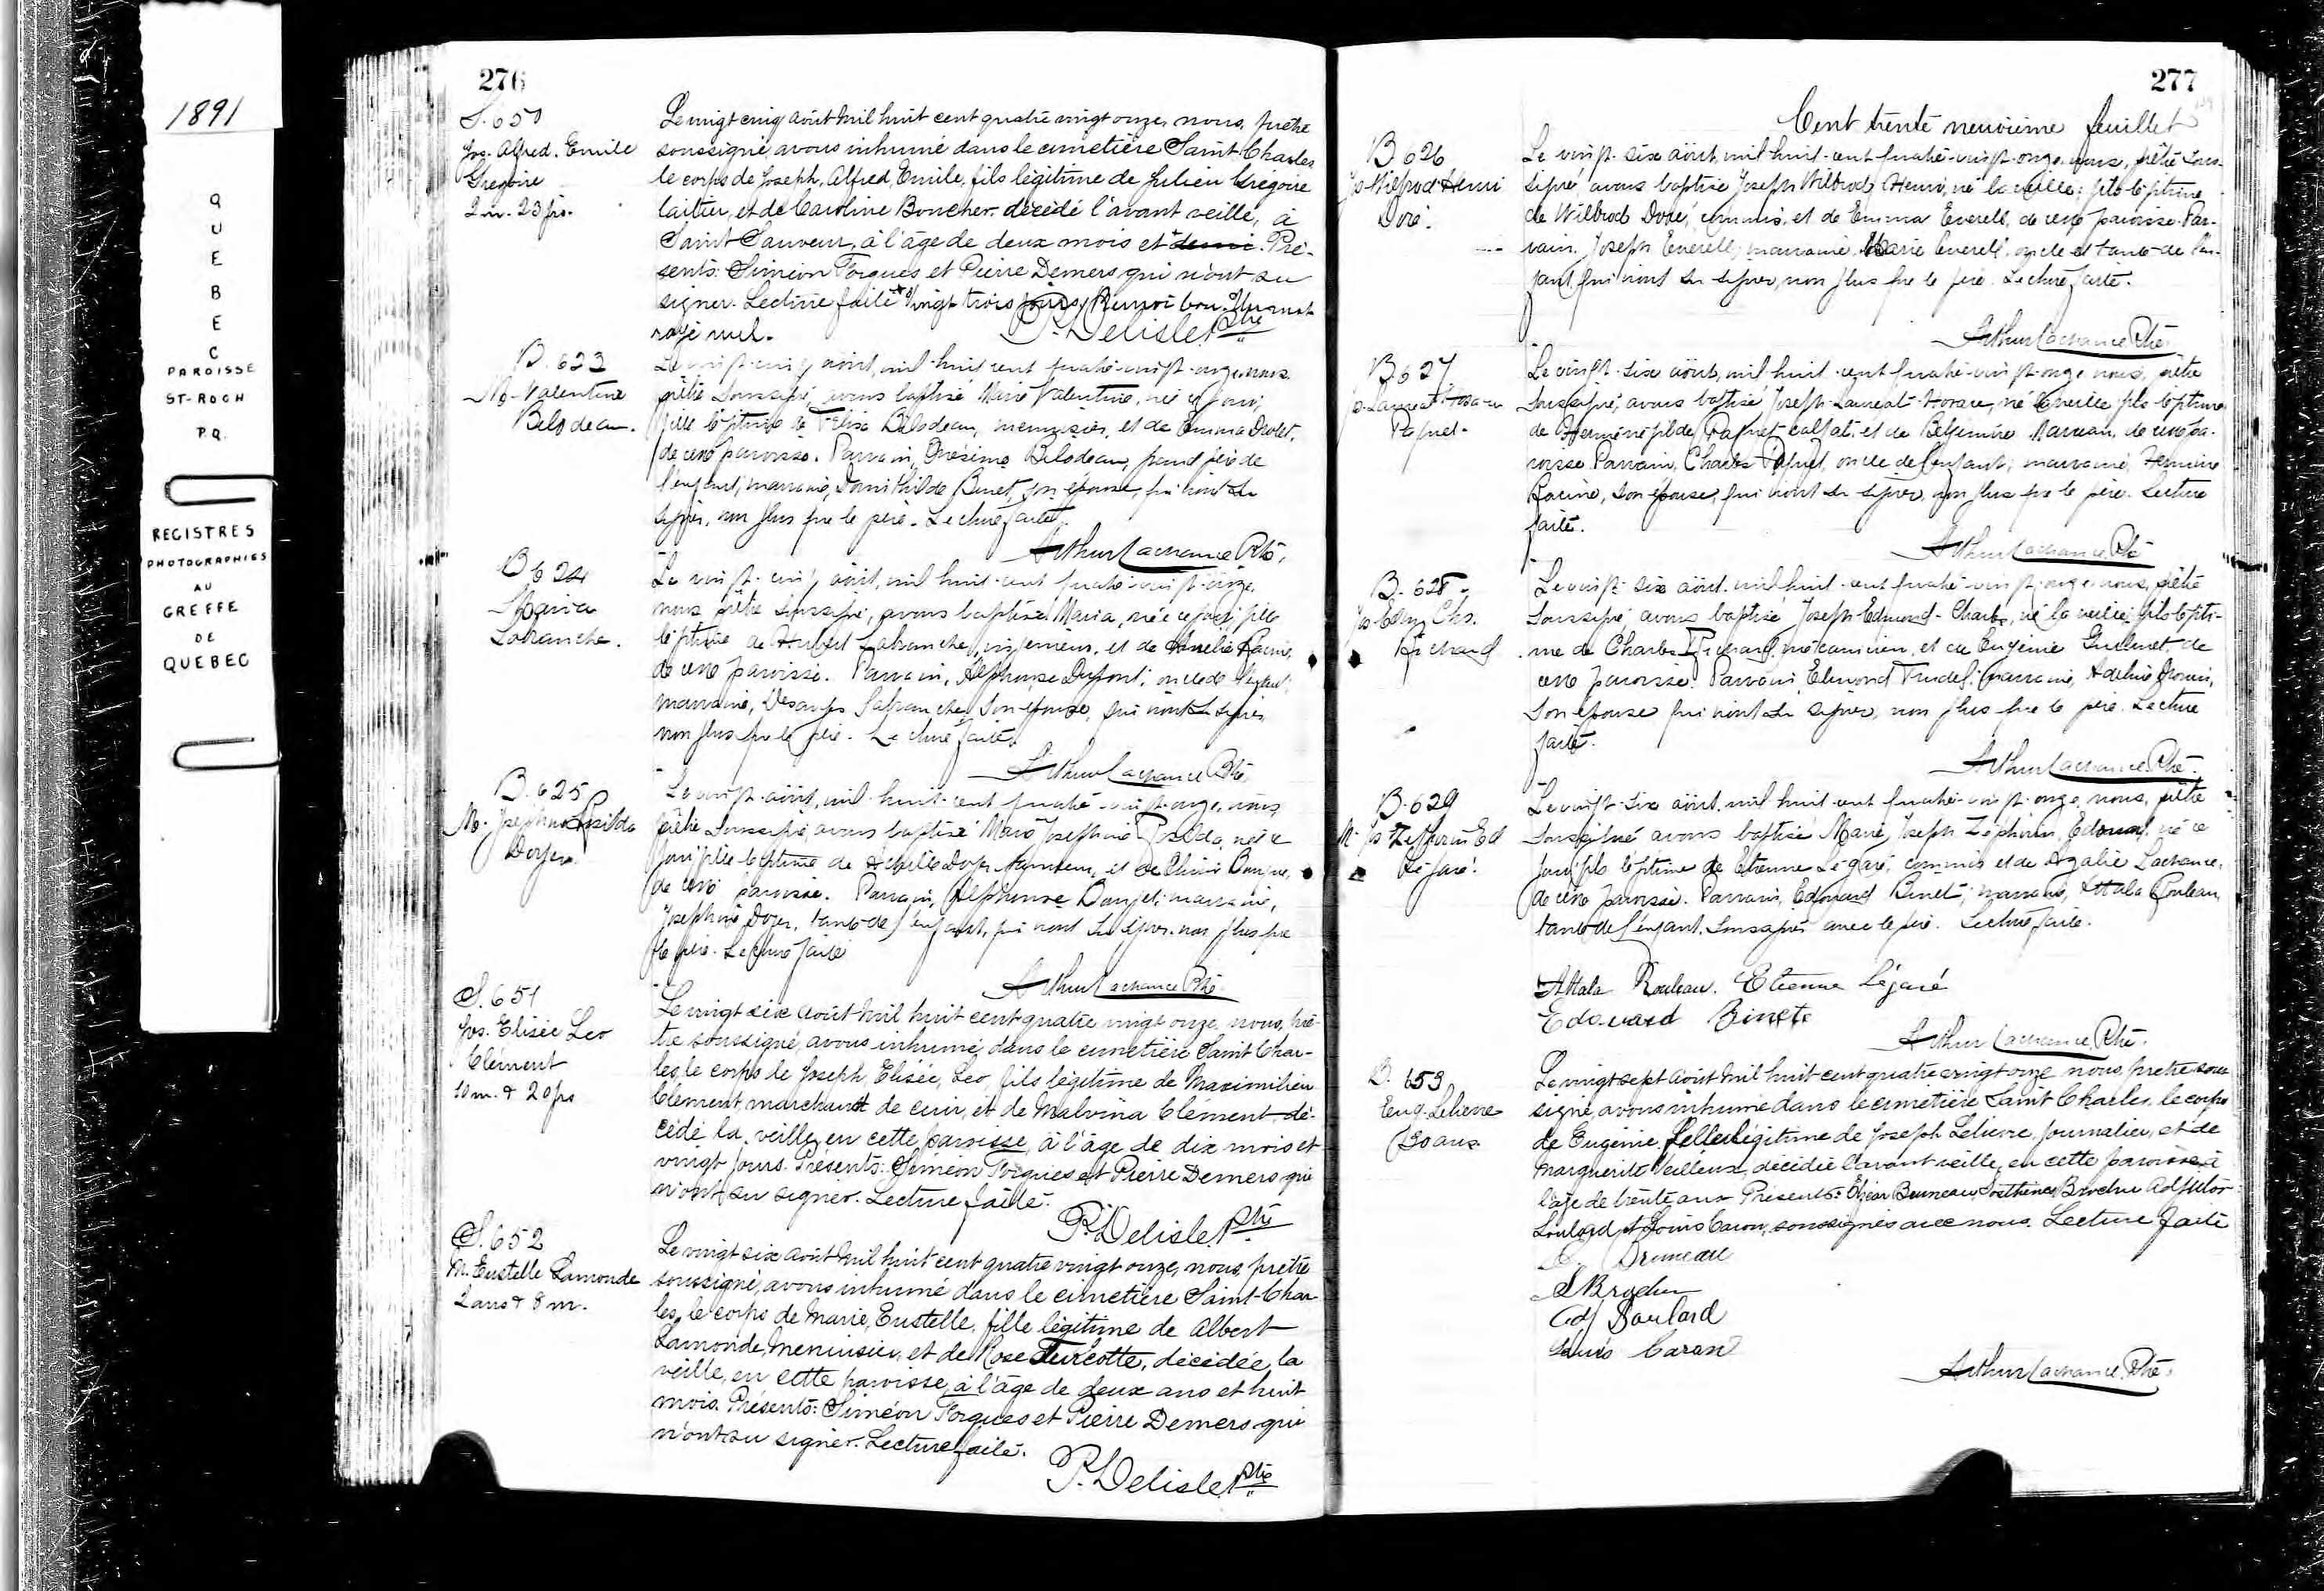 1891
Q
U
E
B
E
C
PAROISSE
ST-ROCH
P.Q.
REGISTRES
PHOTOGRAPHIES
AU
GREFFE
DE
QUEBEC
276
S. 650
Jos. Alfred. Emile
Gregoire
2 m. 23 jrs.
Le vingt cinq août mil huit cent quatre vingt onze, nous, prêtre
soussigné, avons inhumé dans le cimetière Saint-Charles
le corps de Joseph, Alfred, Emile, fils légitime de Julien Grégoire
laitier, et de Caroline Boucher décédé l'avant veille, à
Saint Sauveur, à l'âge de deux mois et demi. Pré-
sents: Siméon Forgues et Pierre Demers qui n'ont su
signer. Lecture faite vingt trois jours Renvoi bon. Un mot
rayé nul.
P. Delisle Ptre
B. 623
M. Valentine
Bilodeau.
Le vingt-cinq août, mil-huit cent quatre-vingt-onze, nous
prêtre soussigné, avons baptisé Marie Valentine, née ce jour,
fille légitime de Félix Bilodeau, menuisier, et de Emma Drolet,
de cette paroisse. Parrain, Onésime Bilodeau, grand père de
l'enfant, marraine, Domithilde Binet, son épouse, qui n'ont su
signer, non plus que le père. Lecture faite.
Arthur Lachance Ptre.
B 624
Maria
Labranche.
Le vingt-cinq août, mil huit-cent quatre-vingt-onze,
nous prêtre soussigné, avons baptisé Maria, née ce jour, fille
légitime de Hubert Labranche, ingénieur, et de Amélie Racine,
de cette paroisse. Parrain, Alphonse Dupont, oncle de l'enfant;
marraine, Desanges Labranche, son épouse, qui n'ont su signer
non plus que le père. Lecture faite.
Arthur Lachance Ptre
B. 625
M. Josephine Rosilda
Doyer.
Le vingt-août, mil-huit-cent quatre-vingt-onze, nous
prêtre soussigné avons baptisé Marie Josephine Rosilda, née ce
jour, fille légitime de Achille Doyer, et de
de cette paroisse. Parrain, Alphonse marraine,
Josephine Doyer, tante de l'enfant, qui n'ont su signer non plus que
le père. Lecture faite
Arthur Lachance Ptre.
S. 651
Jos. Elisée Leo
Clément
10 m. & 20 jrs
Le vingt six août mil huit cent quatre vingt onze, nous, prê-
tre soussigné, avons inhumé dans le cimetière Saint Char-
les, le corps de Joseph, Elisée, Leo, fils légitime de Maximilien
Clément, marchand de cuir, et de Malvina Clément, dé-
cédé la veille, en cette paroisse, à l'âge de dix mois et
vingt jours. Présents: Siméon Forgues et Pierre Demers qui
n'ont su signer. Lecture faite.
P. Delisle Ptre
S. 652
M. Eustelle Lamonde
2 ans & 8 m.
Le vingt six août mil huit cent quatre vingt onze, nous, prêtre
soussigné, avons inhumé dans le cimetière Saint-Char-
les, le corps de Marie, Eustelle, fille légitime de Albert
Lamonde, Menuisier, et de Rose Turcotte, décédée, la
veille, en cette paroisse, à l'âge de deux ans et huit
mois. Présents: Siméon Forgues et Pierre Demers qui
n'ont su signer. Lecture faite.
P. Delisle Ptre
277
Cent trente neuvième feuillet
B 626
Jos Wilbrod Henri
Doré.
Le vingt-six août, mil huit-cent quatre-vingt-onze, nous, prêtre sous-
signé avons baptisé Joseph Wilbrod, Henri, né la veille, fils légitime
de Wilbrod Doré, commis, et de Emma Everell, de cette paroisse. Par-
rain, Joseph Everell, marraine, Marie Everell, oncle et tante de l'en-
fant, qui n'ont su signer, non plus que le père. Lecture faite.
Arthur Lachance Ptre
B 627
Jos. Lauréat Horace
Paquet.
Le vingt-six août, mil huit-cent quatre-vingt-onze, nous, prêtre
soussigné, avons baptisé Joseph-Lauréat-Horace, né la veille, fils légitime
de Herménégilde Paquet, calfat, et de de cette pa-
roisse. Parrain, Charles Paquet, oncle de l'enfant, marraine,
Racine, son épouse, qui n'ont su signer, non plus que le père. Lecture
faite.
Arthur Lachance Ptre
B. 628
Jos Edm. Chs.
Richard
Le vingt-six août, mil huit-cent quatre-vingt-onze, nous, prêtre
soussigné, avons baptisé Joseph-Edmond-Charles, né la veille, fils légiti-
me de Charles Richard, mécanicien, et de Eugénie de
cette paroisse. Parrain, Edmond Trudel, marraine, Adeline
son épouse, qui n'ont su signer, non plus que le père. Lecture
faite.
Arthur Lachance Ptre
B. 629
M. Js Zephirin Ed
Légaré.
Le vingt-six août, mil huit-cent quatre-vingt-onze, nous, prêtre
soussigné avons baptisé Marie, Joseph Zéphirin, Edouard né ce
jour, fils légitime de Etienne Légaré, commis et de Azalie Lachance,
de cette paroisse. Parrain, Edouard Binet, marraine, Attala Rouleau,
tante de l'enfant, soussignés avec le père. Lecture faite.
Attala Rouleau. Etienne Légaré
Edouard Binette
Arthur Lachance Ptre.
S. 653
Eug. Lelievre
(30 ans
Le vingt sept août mil huit cent quatre vingt onze nous, prêtre sous
signé, avons inhumé dans le cimetière Saint Charles, le corps
de Eugénie, fille légitime de Joseph Lelievre, journalier, et de
Marguerite Veilleux, décédée l'avant veille, en cette paroisse, à
l'âge de trente ans Présents: Elzéar Bruneau, Sosthènes Brochu Adjutor
Soulard et Louis Caron, soussignés avec nous. Lecture faite
E. Bruneau
S Brochu
Adj Soulard
Louis Caron
Arthur Lachance Ptre.